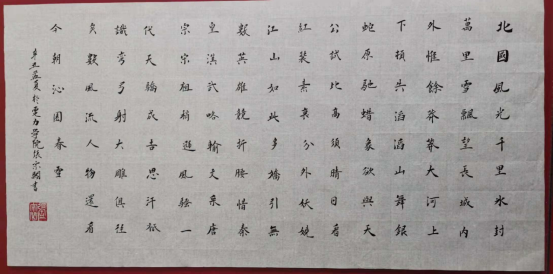 北國風光千里氷封
萬里雪飄望長城内
外惟餘莽莽大河上
下頓失滔滔山舞銀
蛇原馳蜡象欲與天
公試比高須晴日看
紅裝素裹分外妖嬈
江山如此多嬌引無
數英雄競折腰惜秦
皇漢武略輸文采唐
宗宋祖稍遜風騷一
代天驕成吉思汗祇
識彎弓射大雕俱往
矣數風流人物還看
今朝 沁園春雪
辛丑孟夏於電力學院張宗書